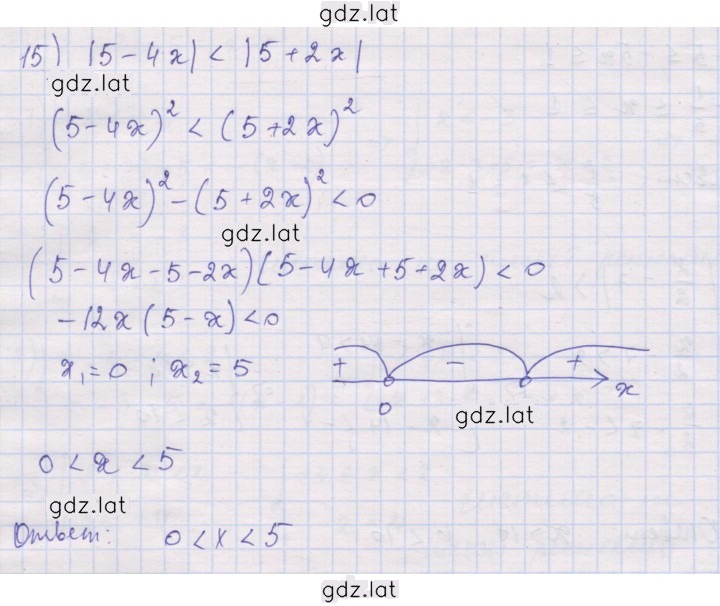 gdz.lat
15) |5-4x| < |5+2x|
gdz.lat
(5-4x)² < (5+2x)²
(5-4x)² - (5+2x)² < 0
gdz.lat
(5-4x-5-2x)(5-4x+5+2x) < 0
-12x(5-x) < 0
x₁=0 ; x₂=5
+ - +
x
0
gdz.lat
0 < x < 5
gdz.lat
Ответ: 0 < x < 5
gdz.lat